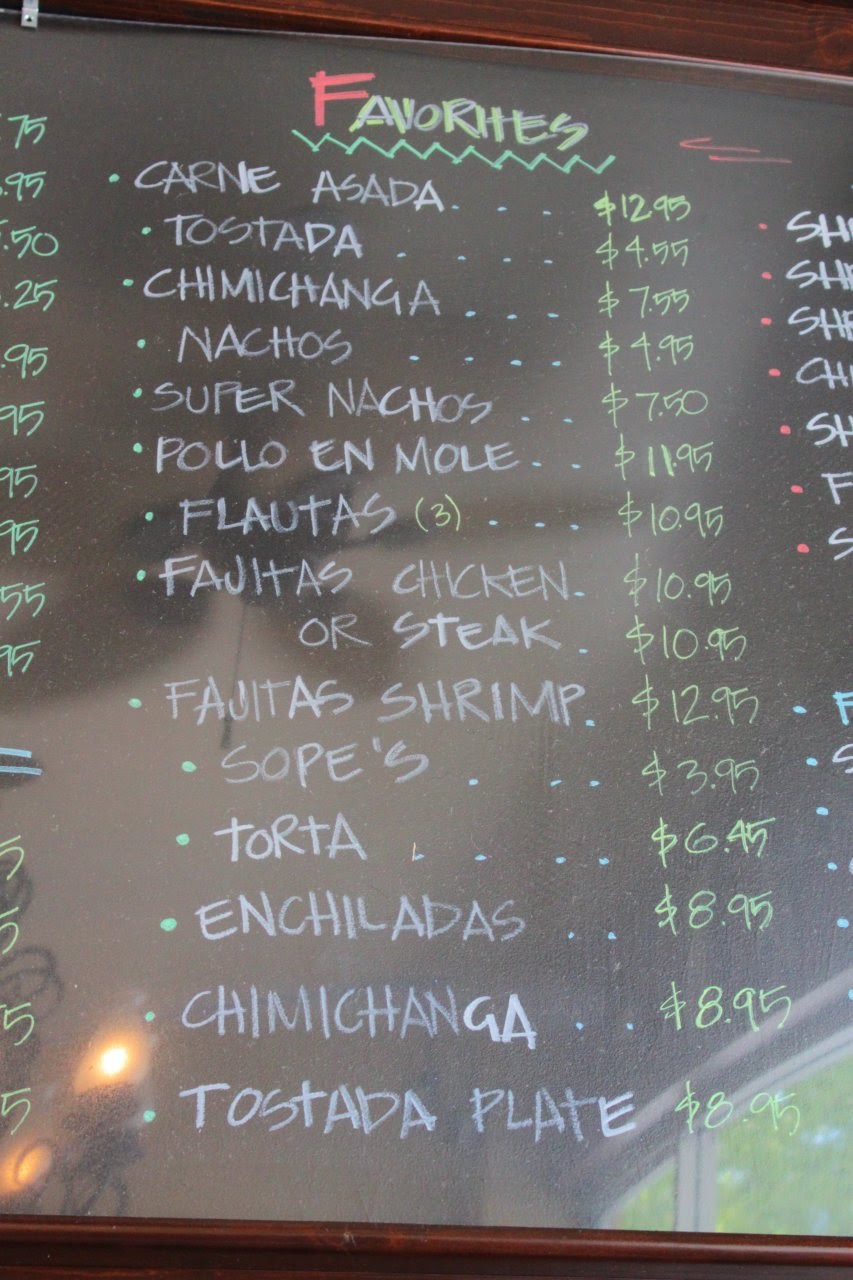 FAVORITES
• CARNE ASADA. . . . $12.95
• TOSTADA . . . . $4.55
• CHIMICHANGA . . . $7.55
• NACHOS . . . . $4.95
• SUPER NACHOS . . $7.50
• POLLO EN MOLE . . $11.95
• FLAUTAS (3) . . . $10.95
• FAJITAS CHICKEN . $10.95
OR STEAK . $10.95
• FAJITAS SHRIMP . $12.95
• SOPE'S . . . $3.95
• TORTA . . . . $6.45
• ENCHILADAS . . $8.95
• CHIMICHANGA . . $8.95
• TOSTADA PLATE $8.95
.75
.95
.50
.25
.95
95
95
95
55
95
5
5
5
5